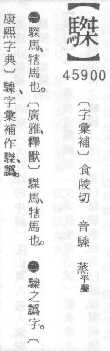 45900
〔字彙補〕食陵切 音騬 蒸平聲
●馬、犗馬也。〔廣雅、釋獸〕馬、犗馬也。●騬之譌字。〔
康熙字典〕騬、字彙補作、譌。